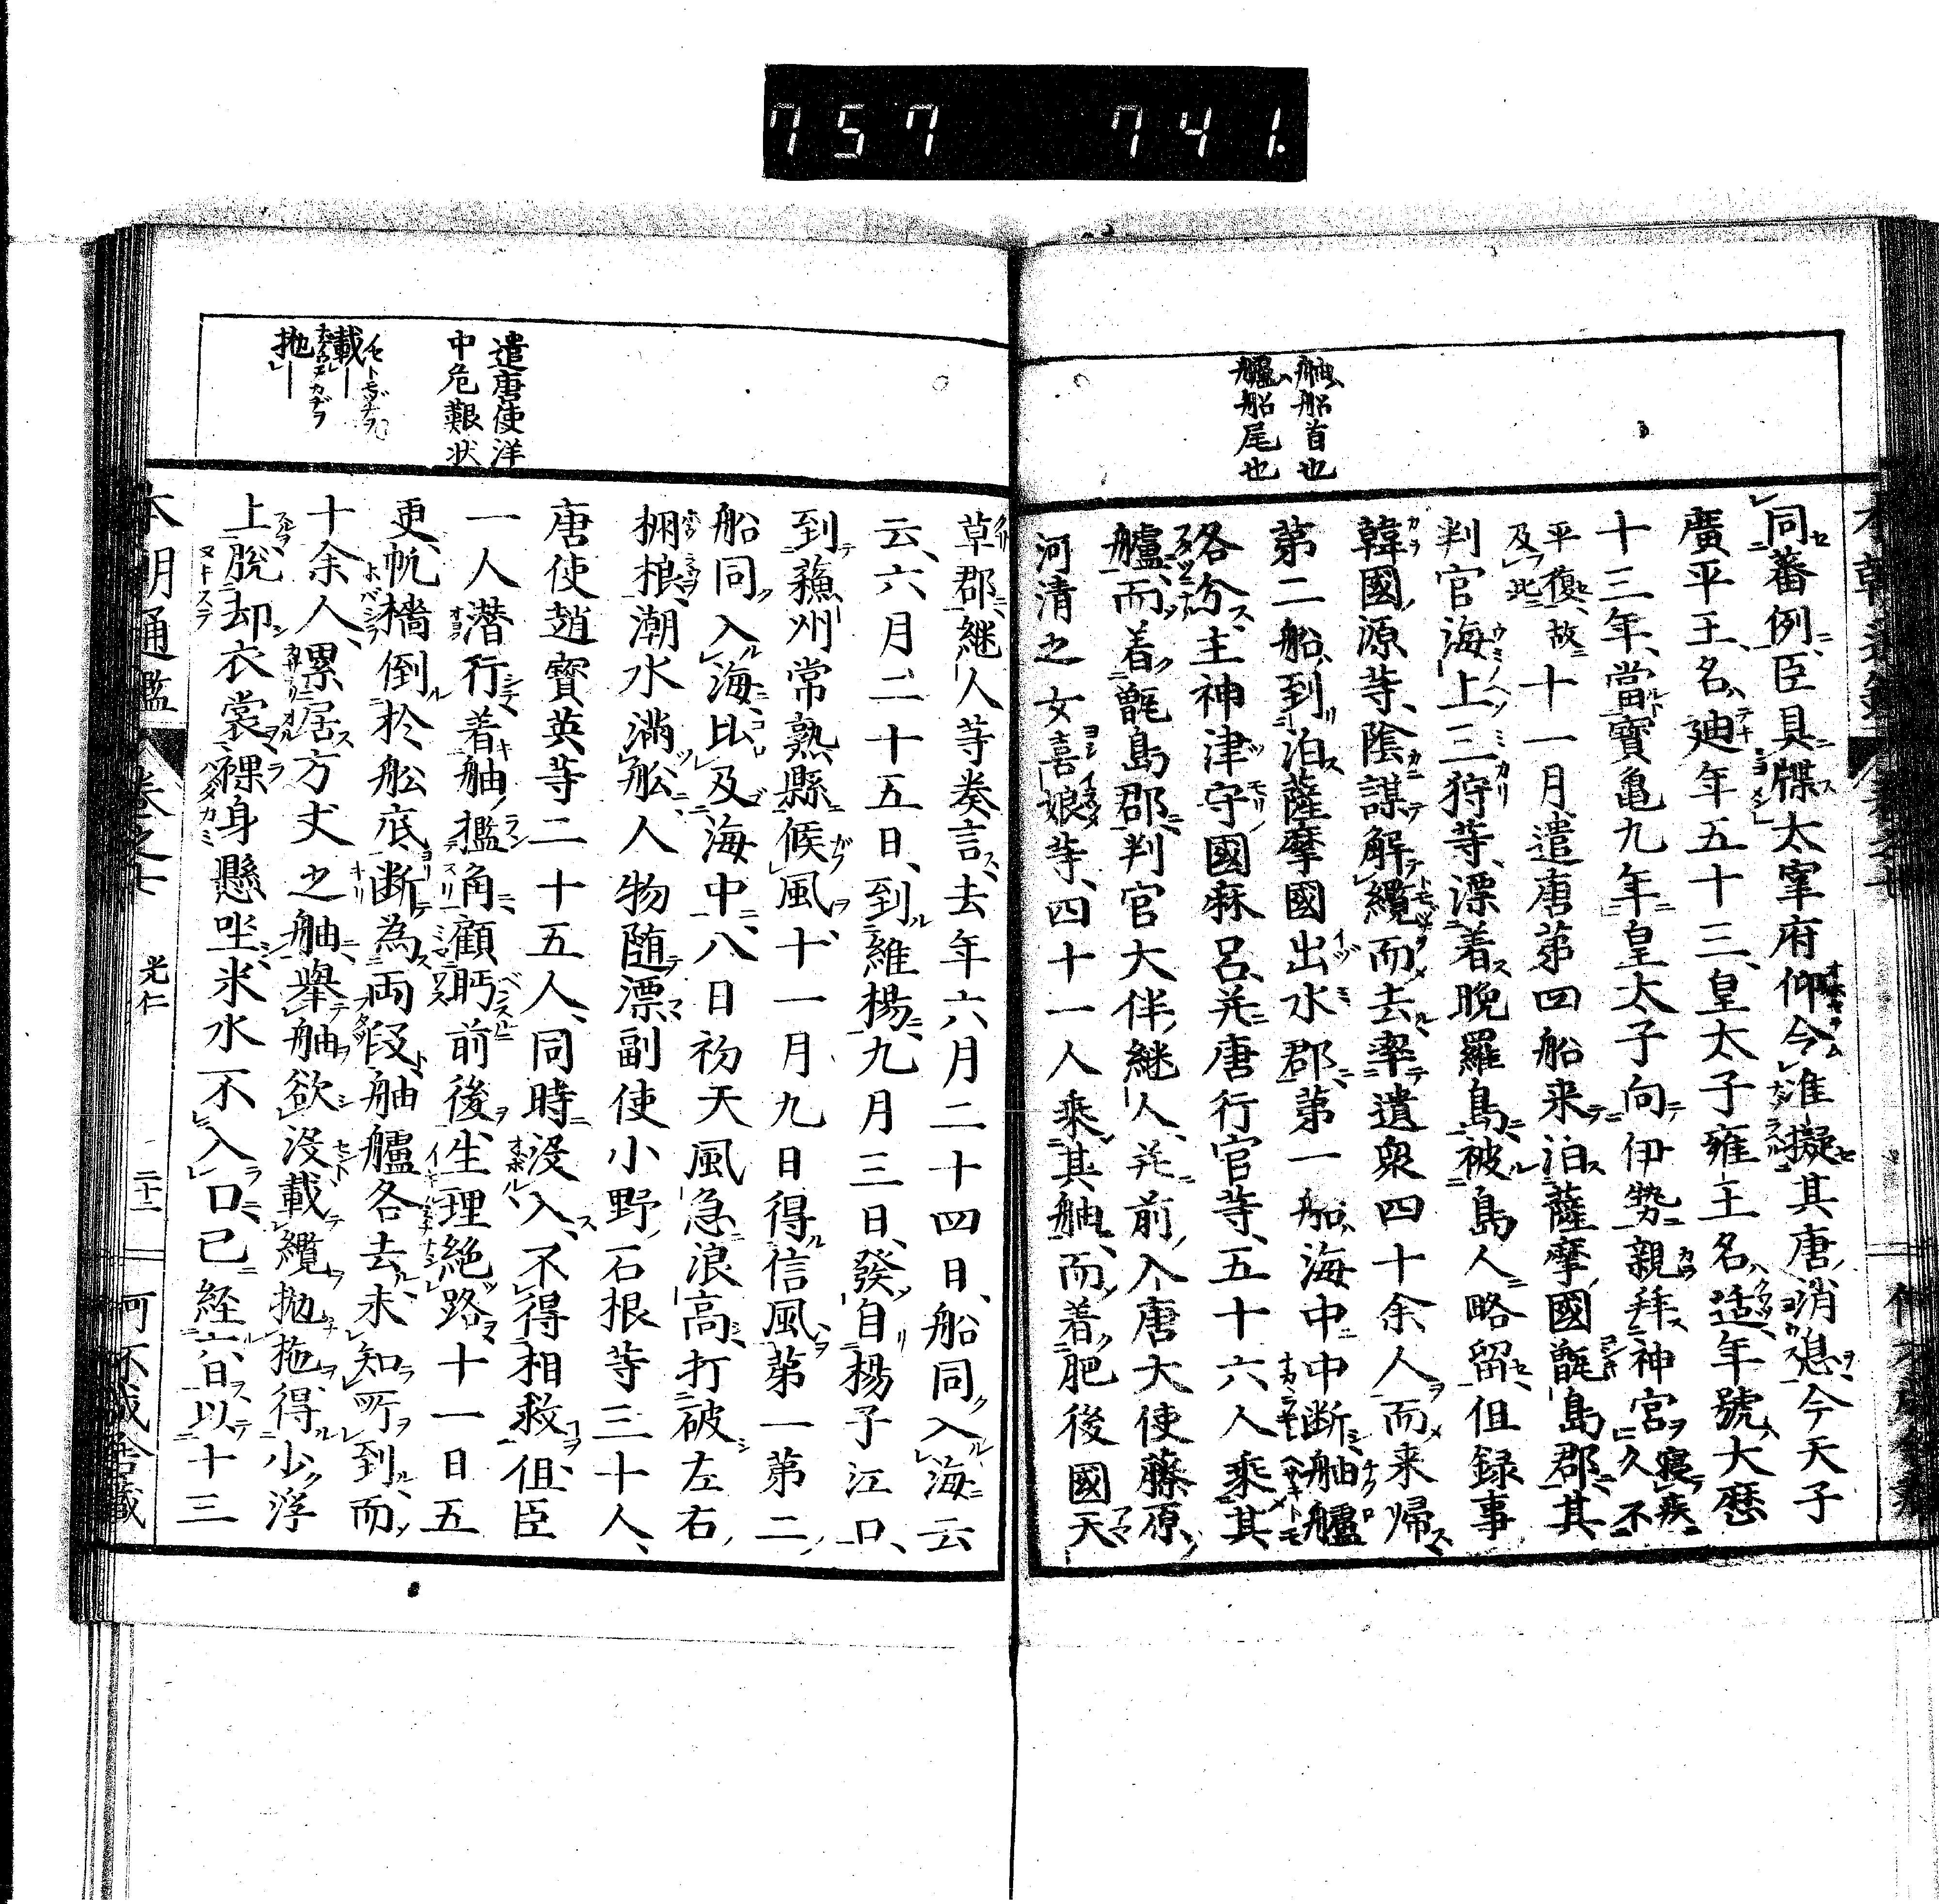 757 741.
舳船首也
艫船尾也
同蕃例臣具牒太宰府仰令准擬其唐消息今天子
廣平王名迪年五十三皇太子雍王名适年號大暦
十三年當寶亀九年皇太子向伊勢親拜神宮寝疾久不
平復故及此十一月遣唐第四船来泊薩摩國甑島郡其
判官海上三狩等漂着晩羅島被島人略留但録事
韓國源等陰謀解纜而去率遺衆四十余人而来歸
第二船到泊薩摩國出水郡第一船海中中断舳艫
各分主神津守國麻呂并唐行官等五十六人乗其
艫而着甑島郡判官大伴継人并前入唐大使藤原
河清之女喜娘等四十一人乗其舳而着肥後國天
遣唐使洋
中危艱状
載
拋
草郡継人等奏言去年六月二十四日船同入海云
云六月二十五日到維楊九月三日發自楊子江口
到蘓州常熟縣候風十一月九日得信風第一第二
船同入海比及海中八日初天風急浪高打破左右
棚根潮水滿舩人物随漂副使小野石根等三十人
唐使趙寳英等二十五人同時没入不得相救但臣
一人潜行着舳檻角顧眄前後生理絶路十一日五
更帆檣倒於舩底断為両段舳艫各去未知所到而
十余人累居方丈之舳舉舳欲没載纜拋柂得少浮
上脱却衣裳裸身懸坐米水不入口已経六日以十三
本朝通鑑 卷之七 光仁 二十二